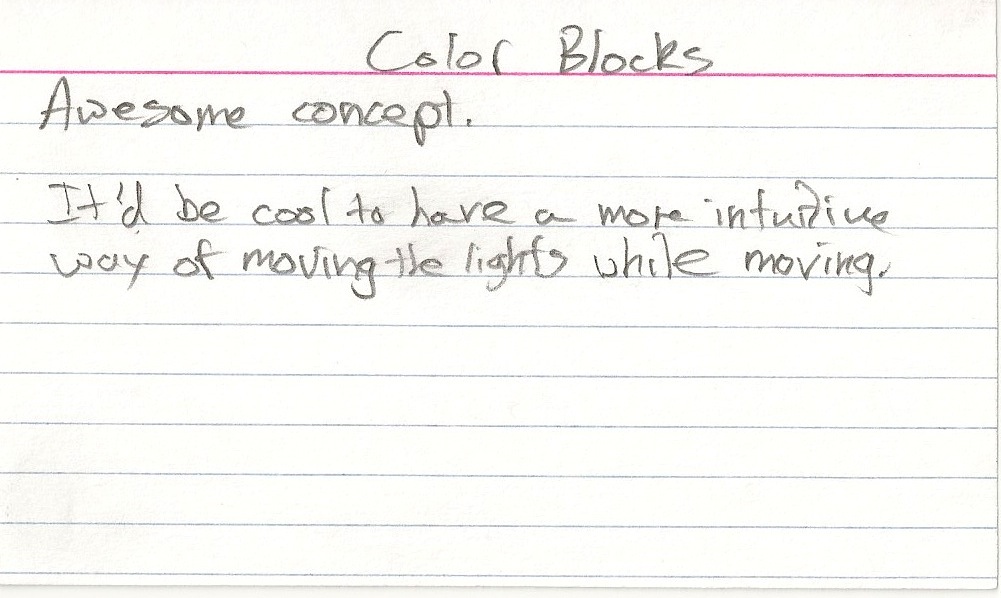 Color Blocks
Awesome concept.
It'd be cool to have a more intuitive
way of moving the lights while moving.